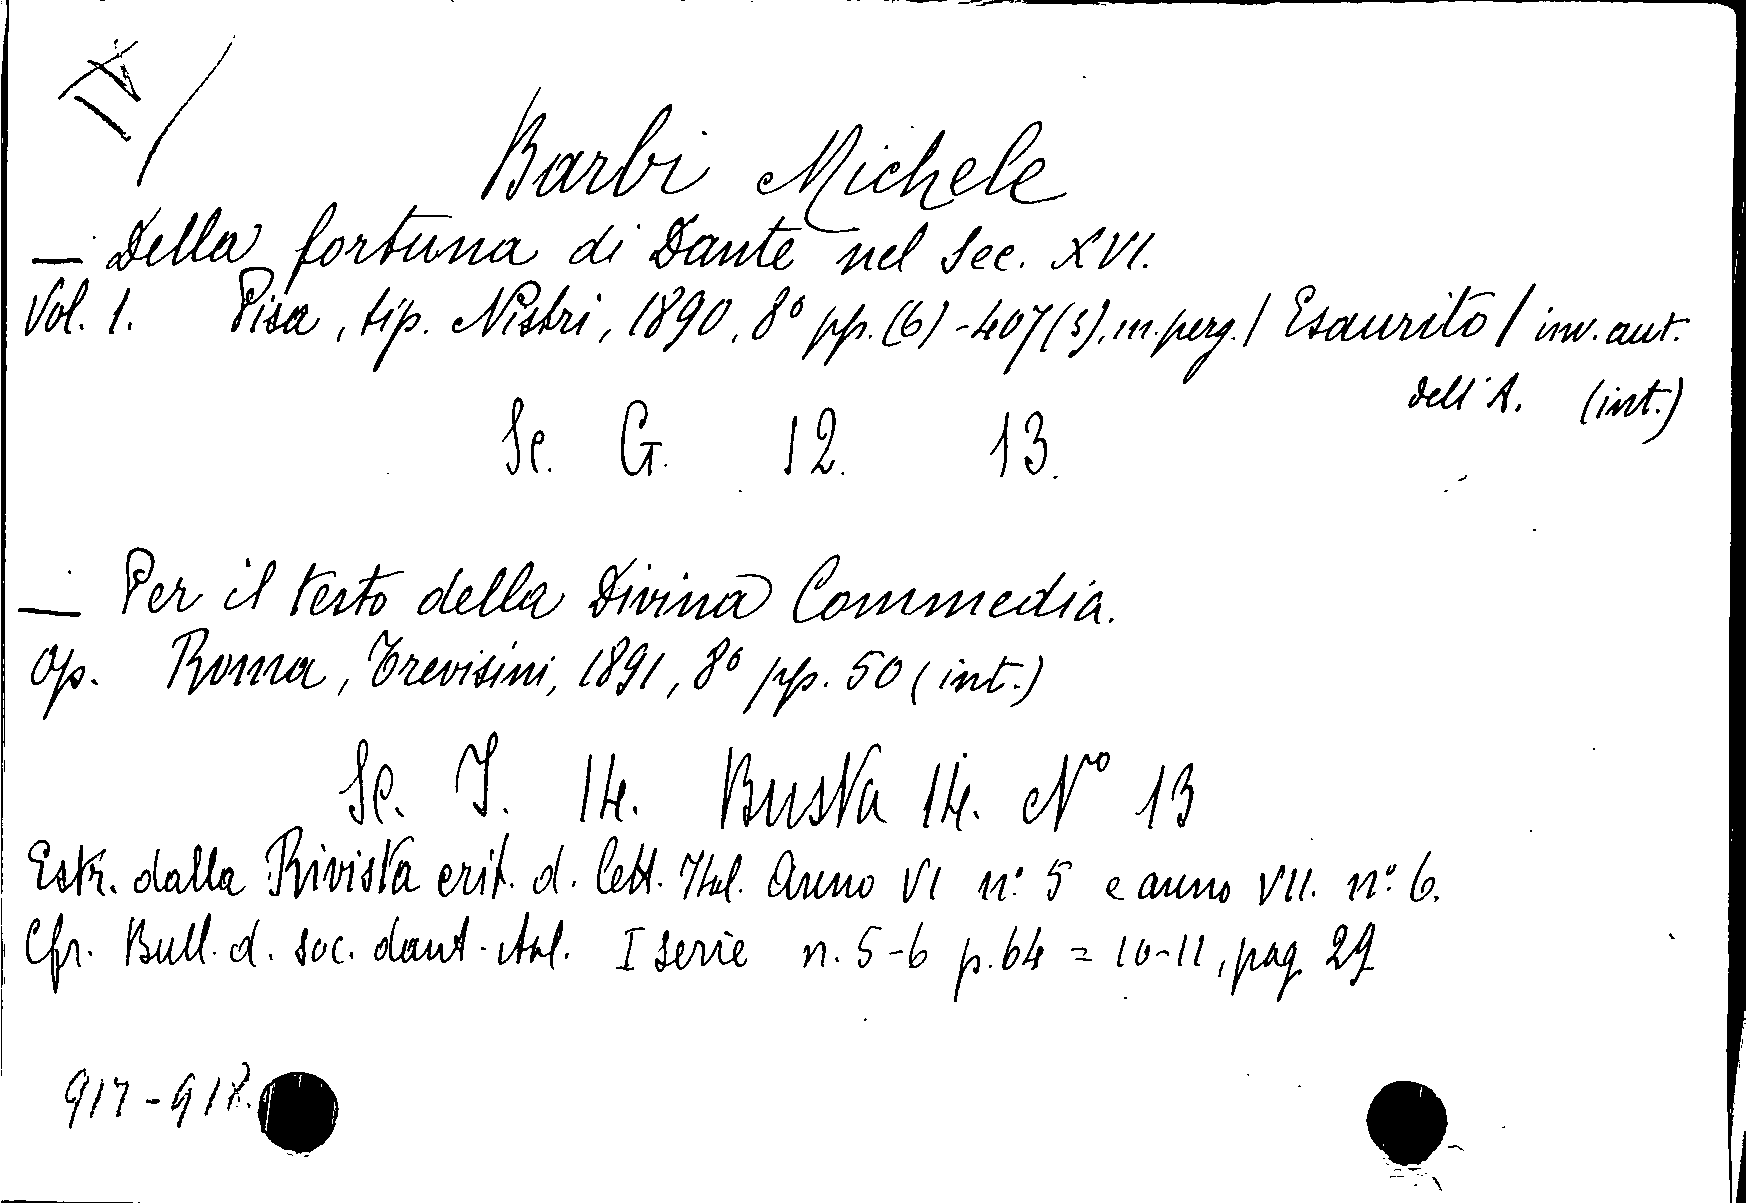 IV
Barbi Michele
— Della fortuna di Dante nel Sec. XVI.
Vol. 1. Pisa, tip. Nistri, 1890, 8° pp. (6)-407(3), m. perg. / Esaurito / inv. aut.
dell'A. (int.)
Sc. G. 12. 13.
— Per il testo della Divina Commedia.
Op. Roma, Trevisini, 1891, 8° pp. 50 (int.)
Sc. I. 14. Busta 14. N° 13
Estr. dalla Rivista crit. d. lett. Ital. Anno VI n.° 5 e anno VII. n.° 6.
Cfr. Bull. d. soc. dant. ital. I serie n. 5-6 p. 64 = 10-11, pag 29
917-918.